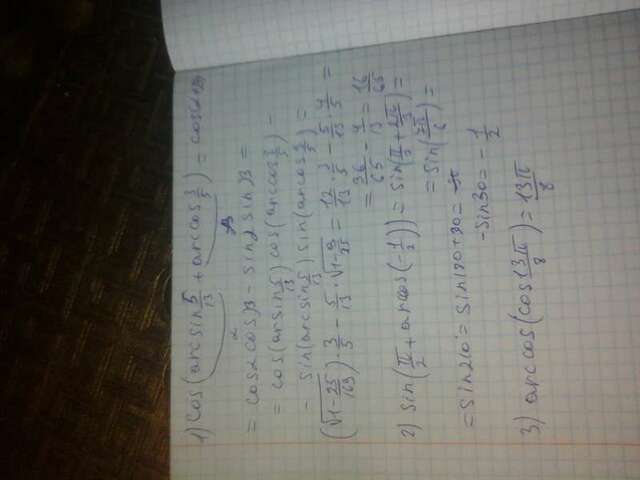 1) cos(arcsin 5/13 + arccos(3/5)) = cos(α+β)
= cosα cosβ - sinα sinβ =
= cos(arcsin 5/13) cos(arccos 3/5) -
- sin(arcsin 5/13) sin(arccos 3/5) =
(√1-25/169) · 3/5 - 5/13 · √1-9/25 = 12/13 · 3/5 - 5/13 · 4/5 =
= 36/65 - 4/13 = 16/65
2) sin(π/2 + arccos(-1/2)) = sin(π/2 + 2π/3) =
= sin(7π/6) =
= sin210° = sin180+30 =
-sin30 = -1/2
3) arccos(cos 13π/8) = 13π/8